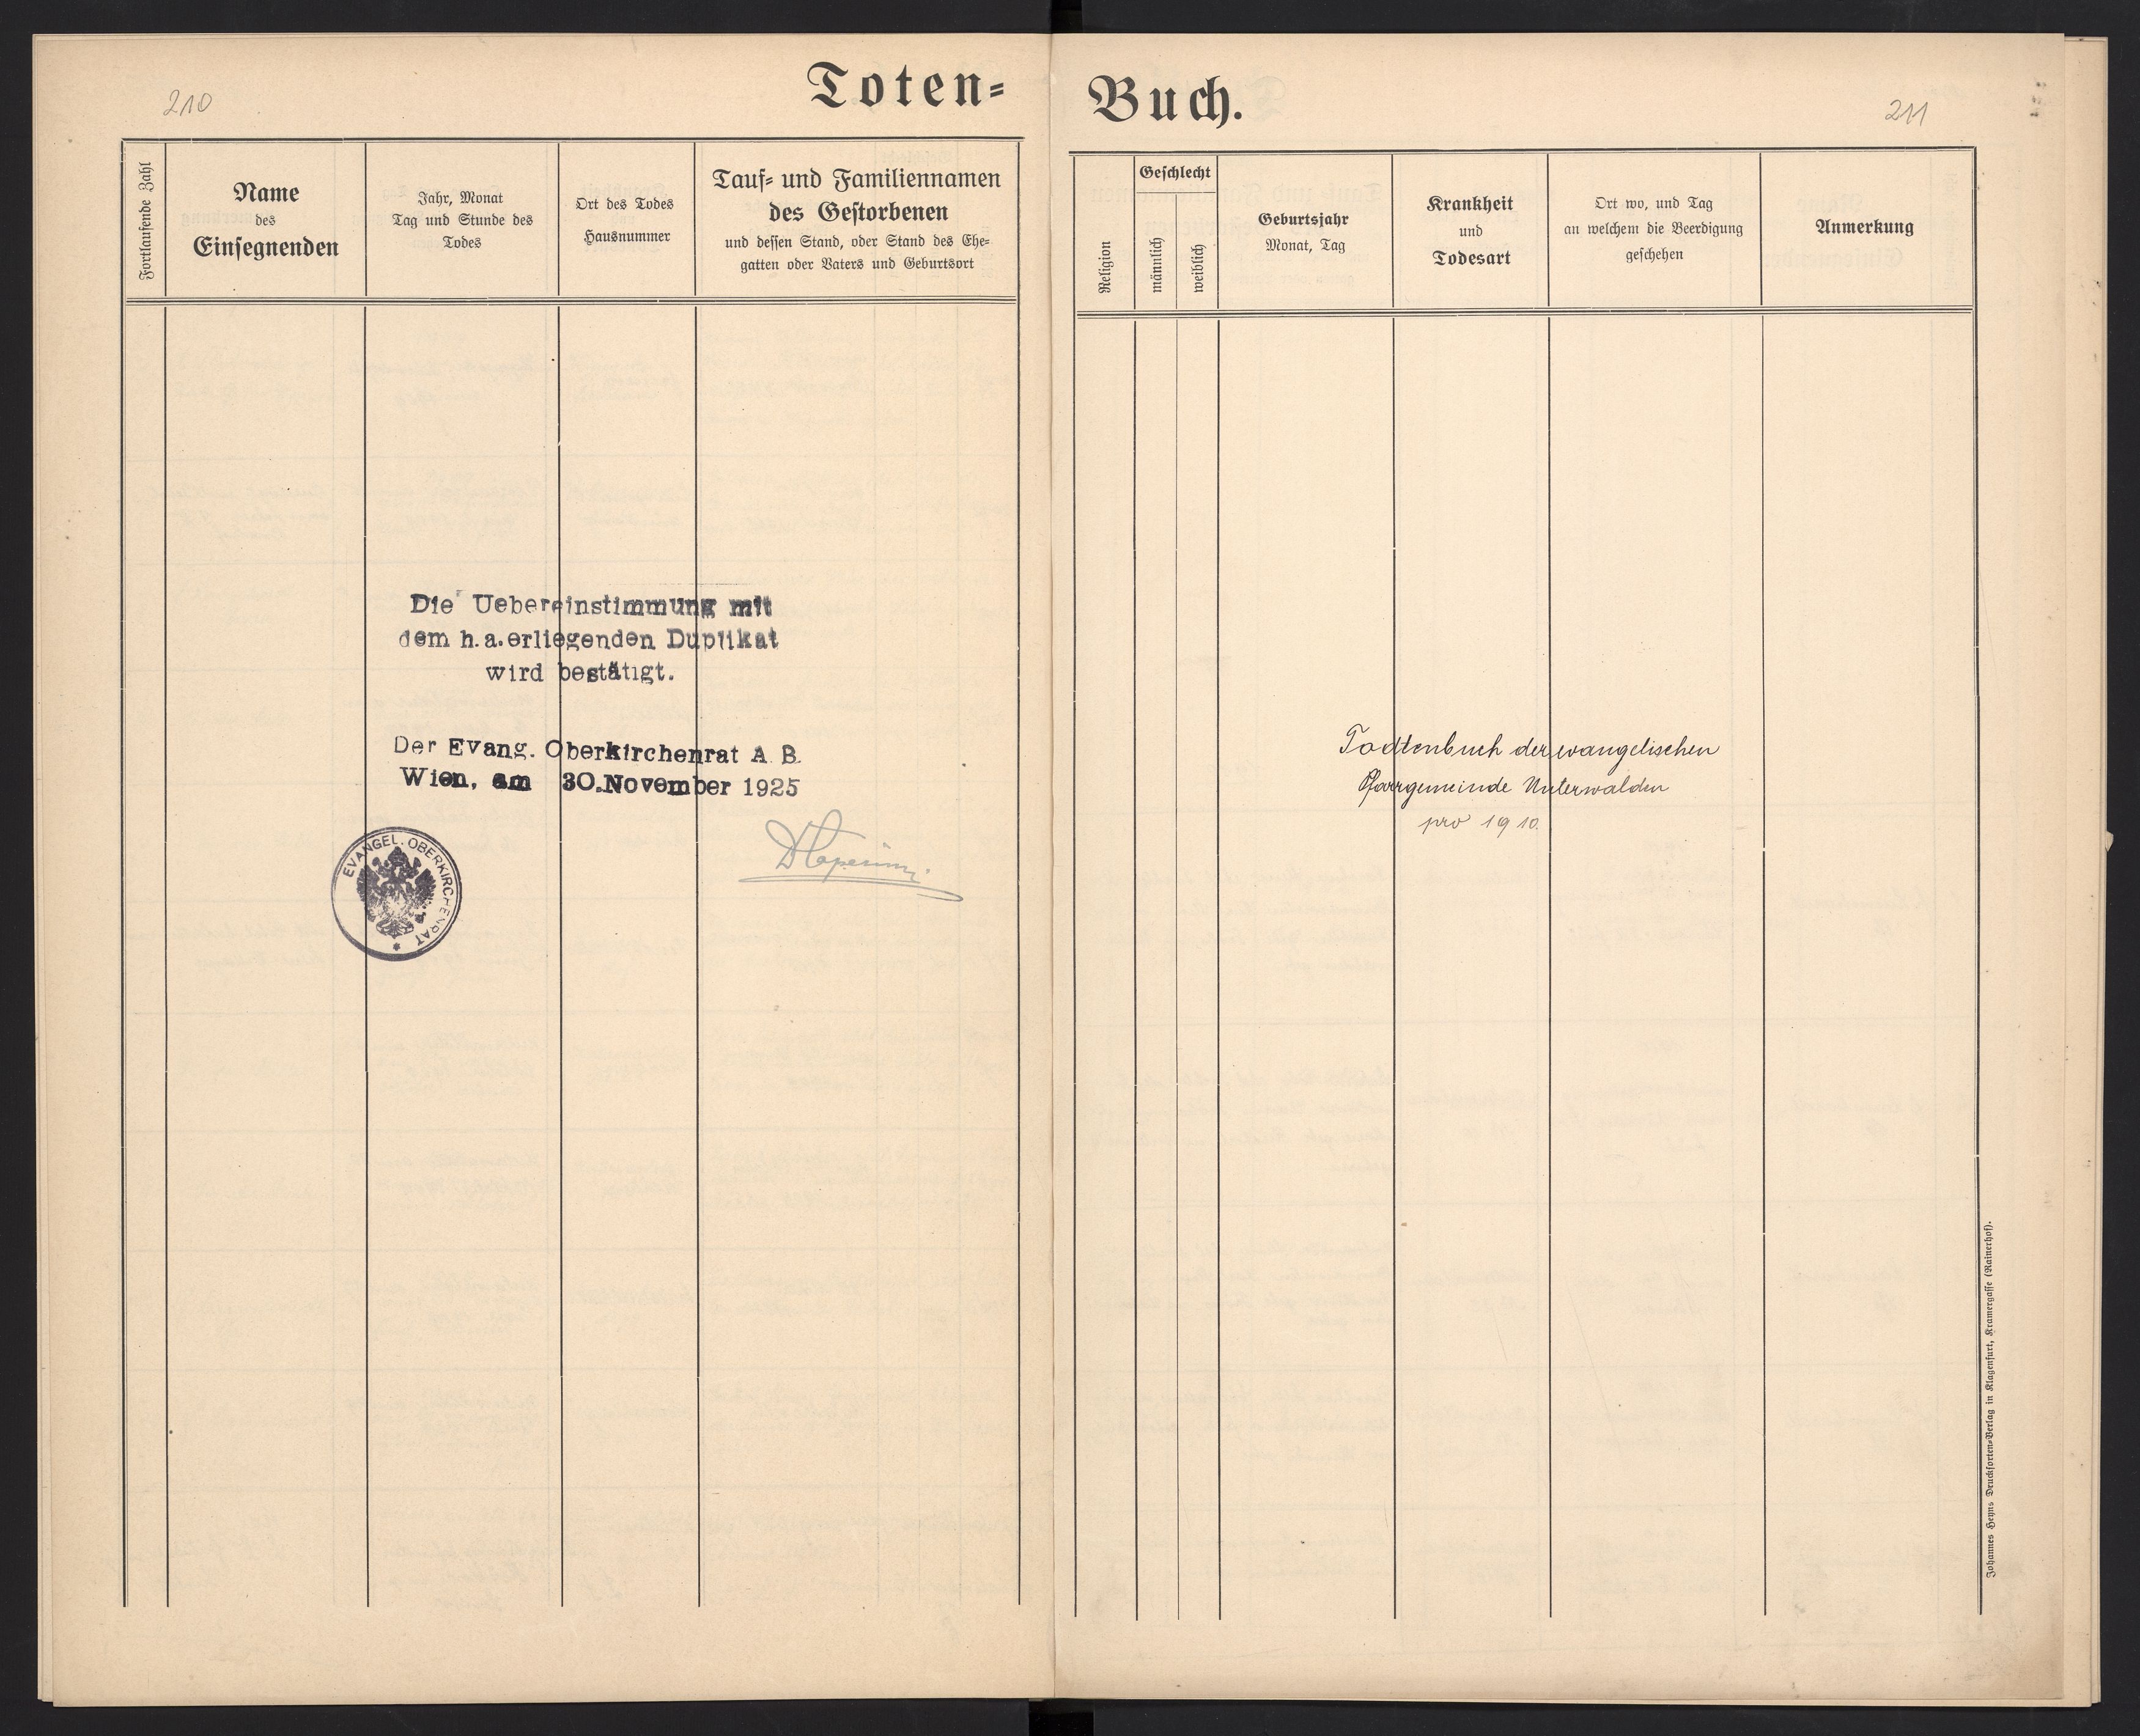 210
Toten=
Fortlaufende Zahl
Name
des
Einsegnenden
Jahr, Monat
Tag und Stunde des
Todes
Ort des Todes
Hausnummer
Tauf= und Familiennamen
des Gestorbenen
und dessen Stand, oder Stand des Ehe=
gatten oder Vaters und Geburtsort
Die Uebereinstimmung mit
dem h.a.erliegenden Duplikat
wird bestätigt.
Der Evang. Oberkirchenrat A.B.
Wien, am 30.November 1925
EVANGEL. OBERKIRCHENRAT
Buch.
211
Religion
Geschlecht
männlich
weiblich
Geburtsjahr
Monat, Tag
Krankheit
und
Todesart
Ort wo, und Tag
an welchem die Beerdigung
geschehen
Anmerkung
Todtenbuch der evangelischen
Pfarrgemeinde Unterwalden
pro 1910.
Johannes Heyns Drucksorten=Verlag in Klagenfurt, Kramergasse (Rainerhof).